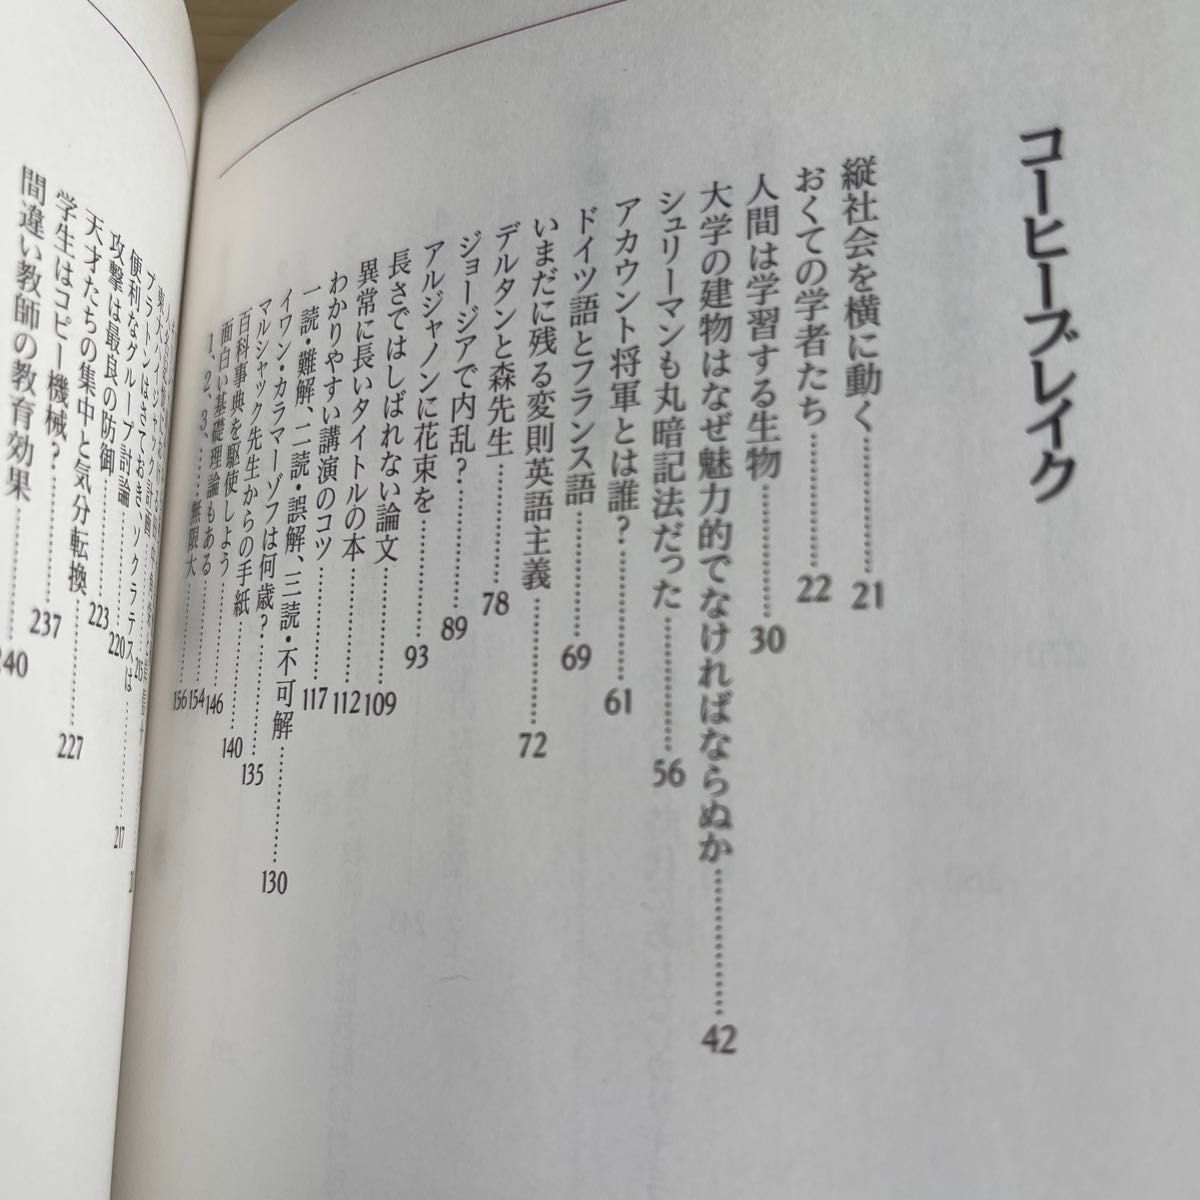 コーヒーブレイク
縦社会を横に動く…………21
おくての学者たち…………22
人間は学習する生物…………30
大学の建物はなぜ魅力的でなければならぬか…………42
シュリーマンも丸暗記法だった…………56
アカウント将軍とは誰？…………61
ドイツ語とフランス語…………69
いまだに残る変則英語主義…………72
デルタンと森先生…………78
ジョージアで内乱？…………89
アルジャノンに花束を…………93
長さではしばれない論文…………109
異常に長いタイトルの本…………112
わかりやすい講演のコツ…………117
一読・難解、二読・誤解、三読・不可解…………130
イワン・カラマーゾフは何歳？…………135
マルシャック先生からの手紙…………140
百科事典を駆使しよう…………146
面白い基礎理論もある…………154
1、2、3、……無限大…………156
プラトンはさておき、ソクラテスは…………217
便利なグループ討論…………220
攻撃は最良の防御…………223
天才たちの集中と気分転換…………227
学生はコピー機械？…………237
間違い教師の教育効果…………240